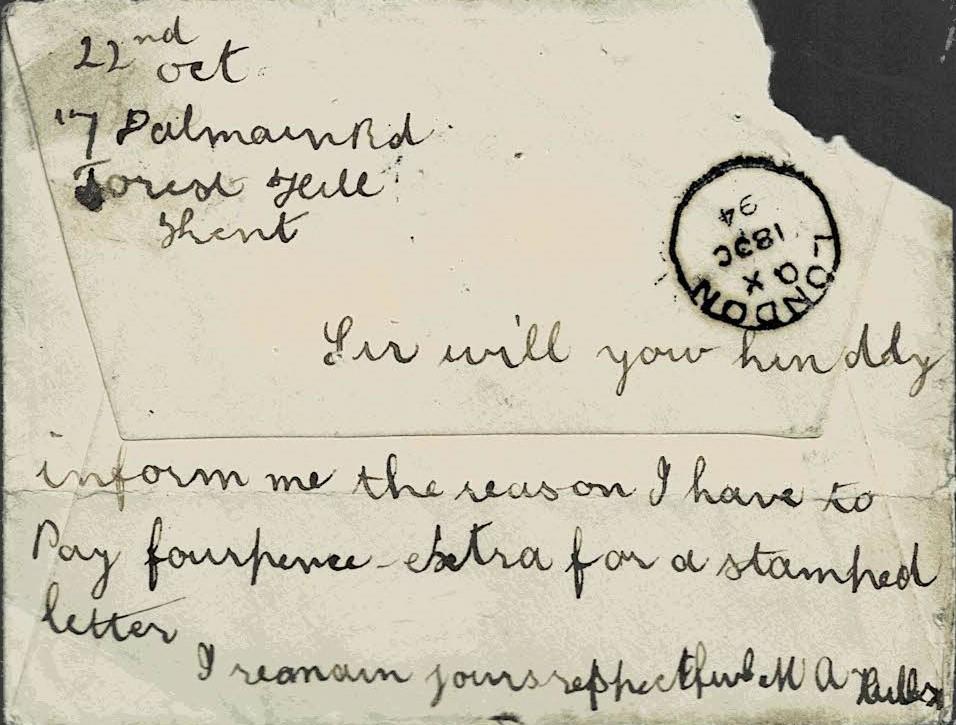 22nd
oct
17 Dalmain Rd
Forest Hill
Kent
LONDON
X
18 OC
94
Sir will you kinddly
inform me the reason I have to
Pay fourpence extra for a stamped
letter
I reamain yours respectful M A